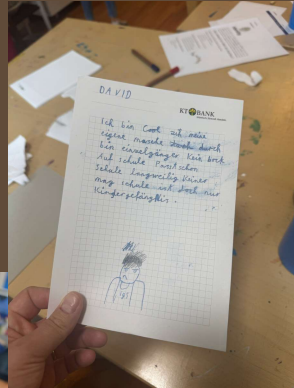 DAVID
KT BANK
Ich bin Cool auf meine
eigene, mache doch durch
bin einzelgänger kein bock
Auf schule Passt schon
schule langweilig keiner
mag schule ist doch nur
Kindergefängnis.